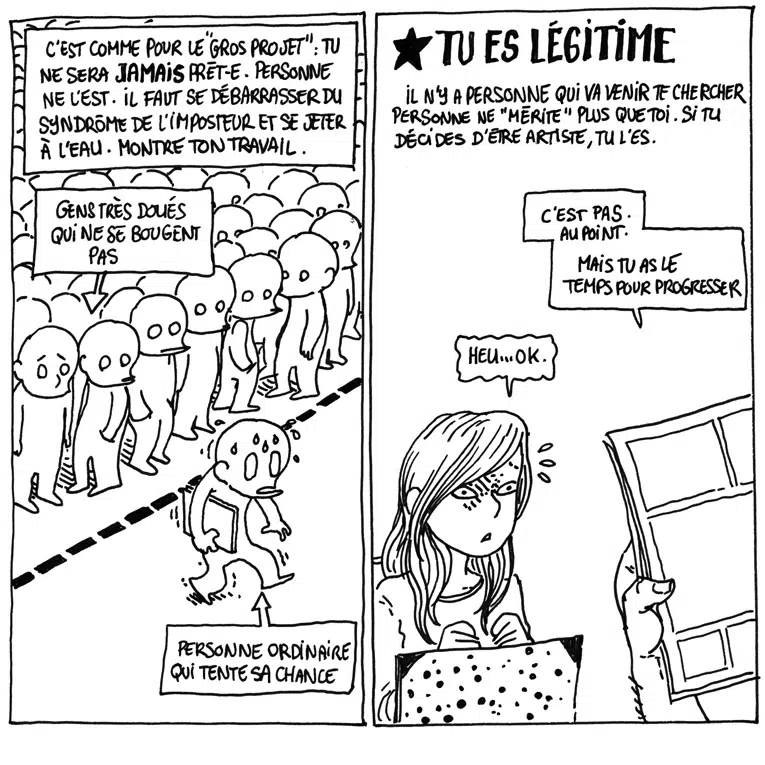 C'EST COMME POUR LE "GROS PROJET" : TU
NE SERA JAMAIS PRÊT-E. PERSONNE
NE L'EST. IL FAUT SE DÉBARRASSER DU
SYNDRÔME DE L'IMPOSTEUR ET SE JETER
À L'EAU. MONTRE TON TRAVAIL.
GENS TRÈS DOUÉS
QUI NE SE BOUGENT
PAS
PERSONNE ORDINAIRE
QUI TENTE SA CHANCE
★ TU ES LÉGITIME
IL N'Y A PERSONNE QUI VA VENIR TE CHERCHER
PERSONNE NE "MÉRITE" PLUS QUE TOI. SI TU
DÉCIDES D'ÊTRE ARTISTE, TU L'ES.
C'EST PAS.
AU POINT.
MAIS TU AS LE
TEMPS POUR PROGRESSER
HEU...OK.